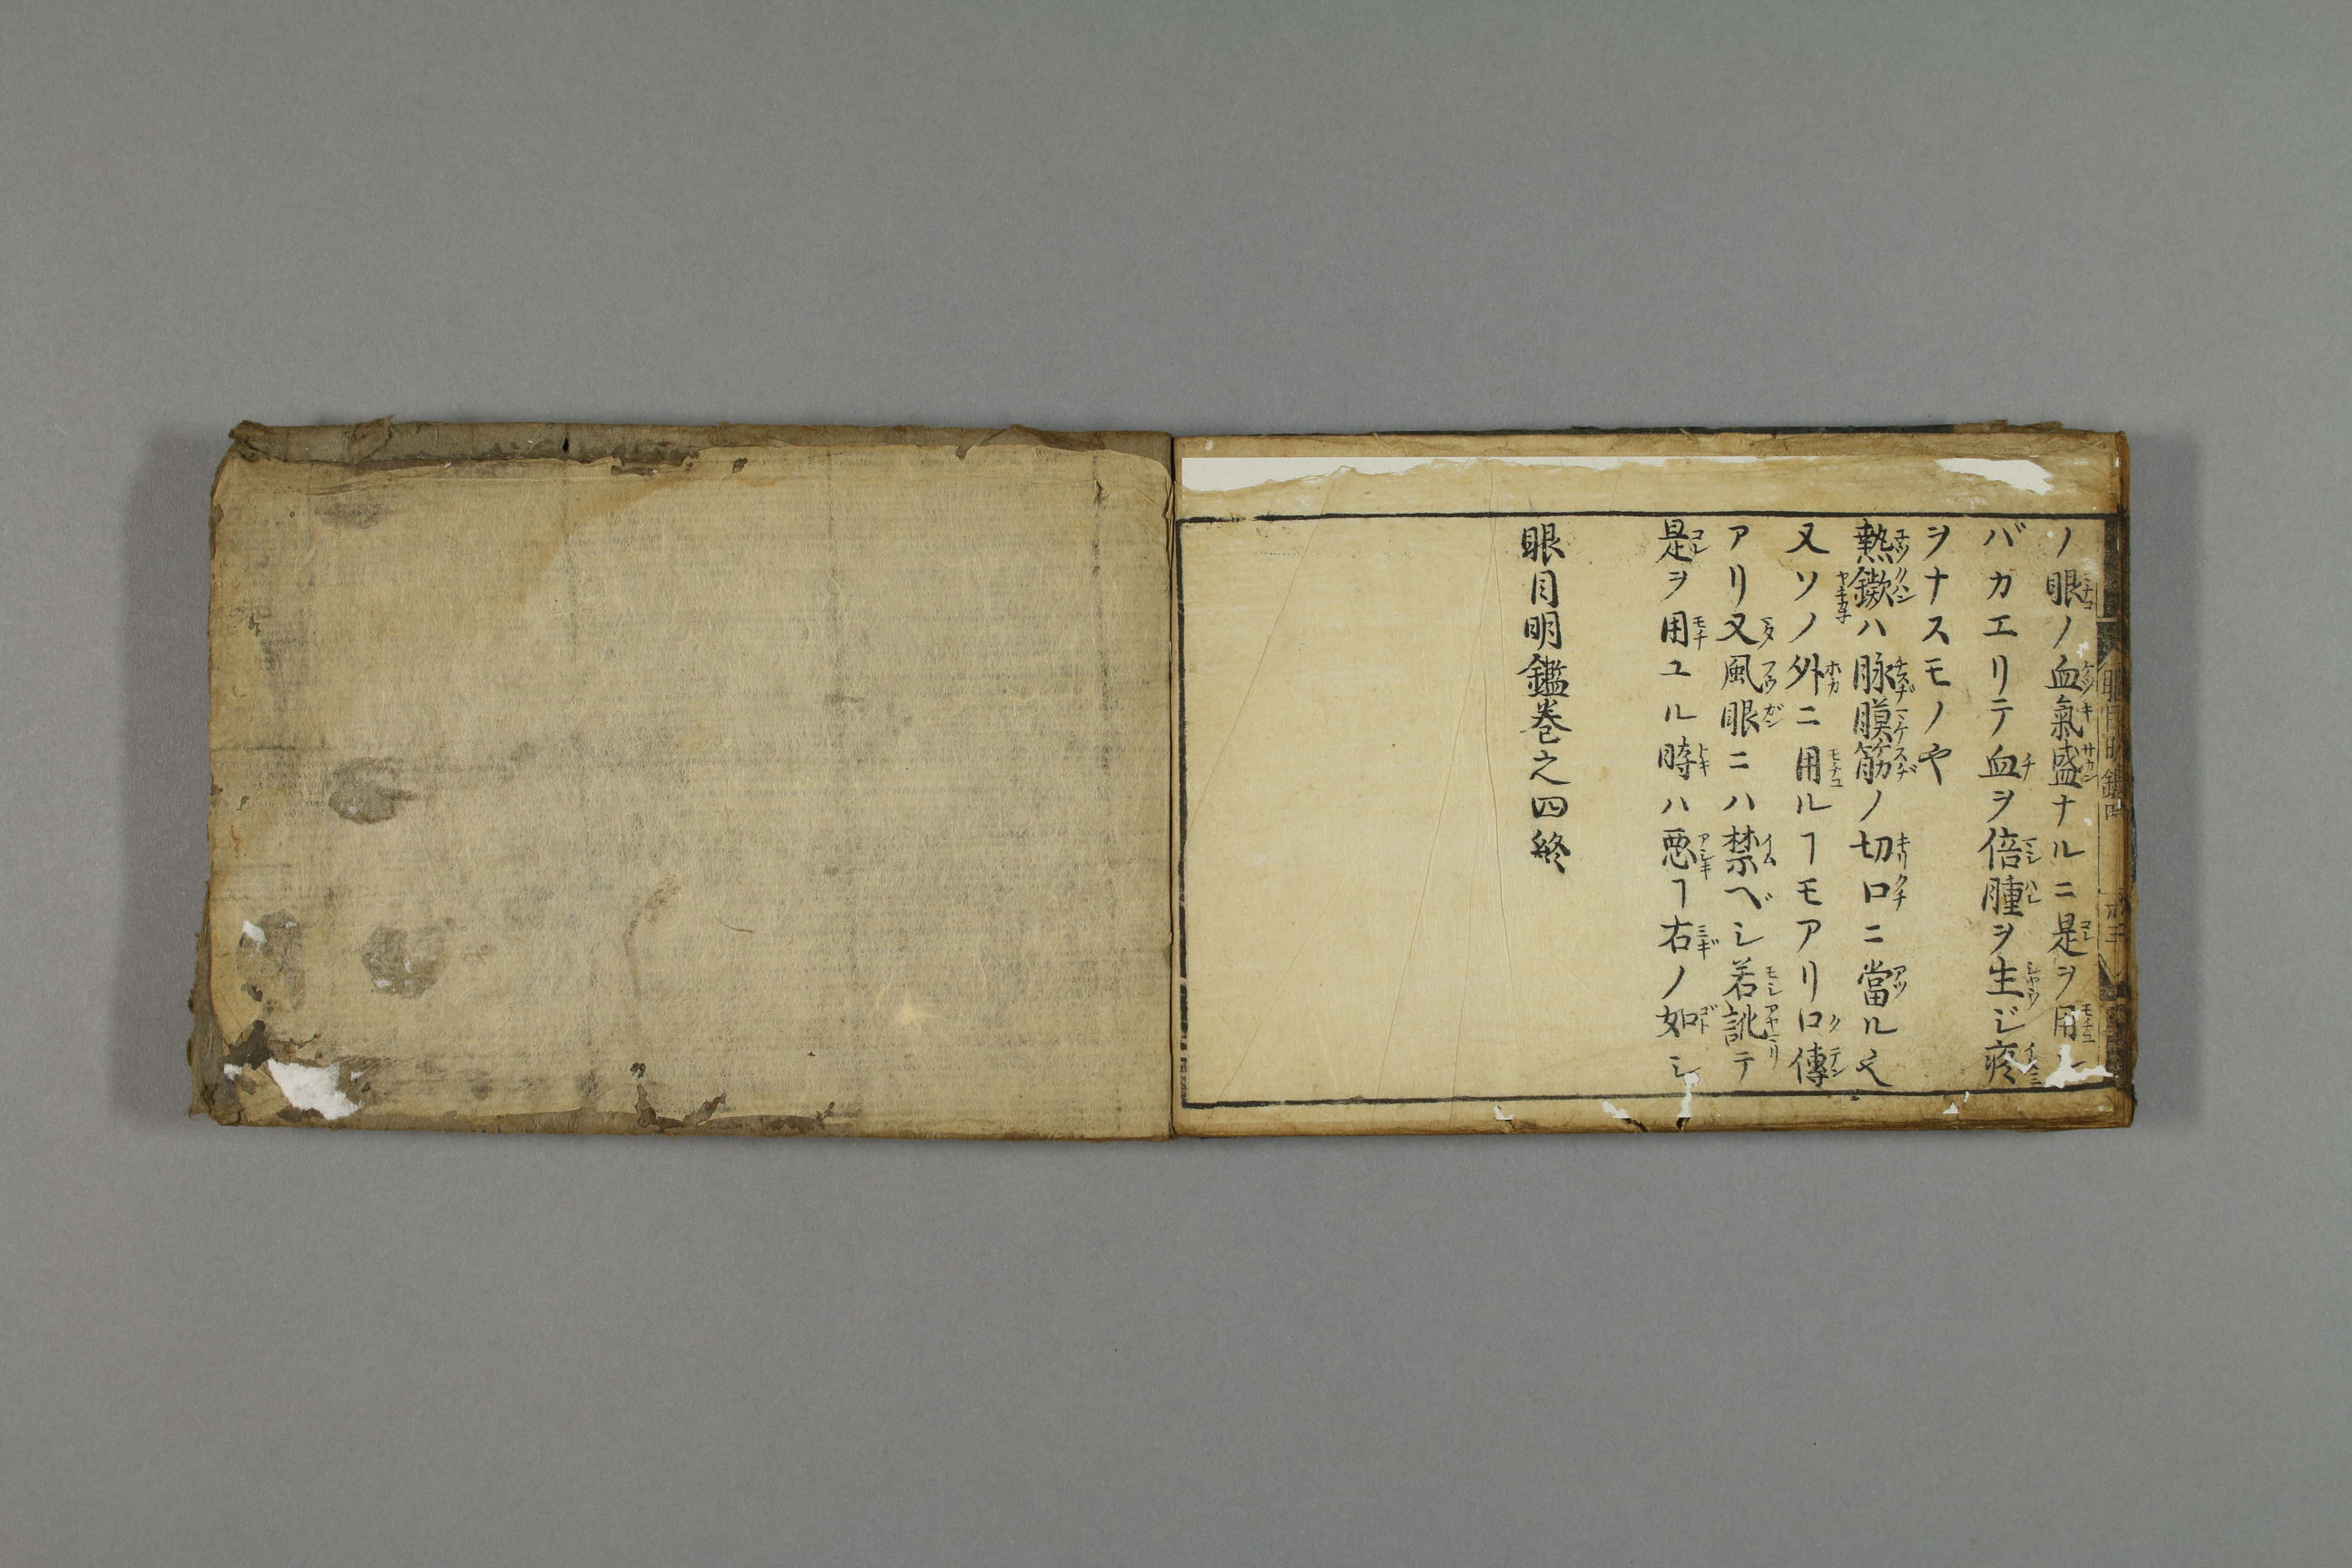 ノ眼ノ血氣盛ナルニ是ヲ用レ
バカエリテ血ヲ倍腫ヲ生ジ疼
ヲナスモノや
熱鏾ハ脉膜筋ノ切口ニ當ル也
又ソノ外ニ用ルヿモアリ口傳
アリ又風眼ニハ禁ベシ若訛テ
是ヲ用ユル時ハ悪ヿ右ノ如シ
眼目明鑑巻之四終